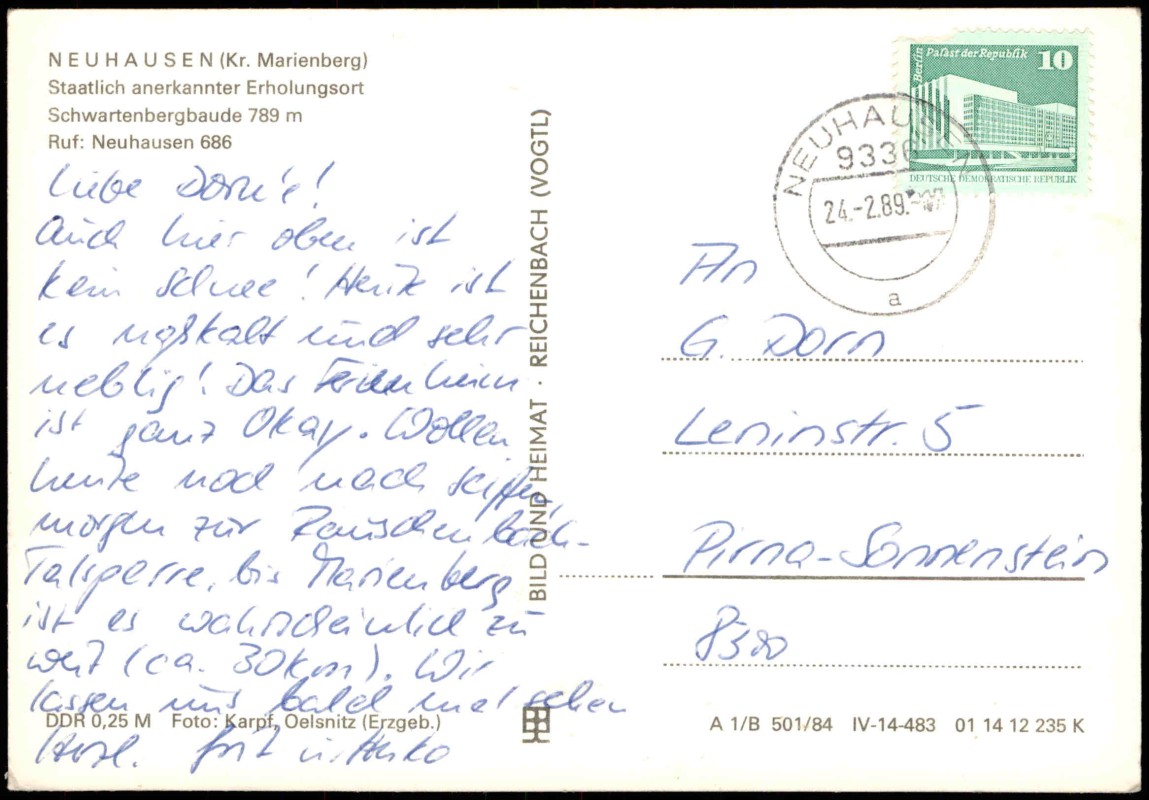 NEUHAUSEN (Kr. Marienberg)
Staatlich anerkannter Erholungsort
Schwartenbergbaude 789 m
Ruf: Neuhausen 686
Liebe Dorn's!
Auch hier oben ist
kein Schnee! Heute ist
es naßkalt und sehr
neblig! Das Ferienheim
ist ganz Okay. Wollen
heute noch nach Seiffen,
morgen zur Rauschenbach-
Talsperre, bis Marienberg
ist es wahrscheinlich zu
weit (ca. 30km). Wir
lassen uns bald mal sehen
Herzl. u. Anko
DDR 0,25 M Foto: Karpf, Oelsnitz (Erzgeb.)
BILD UND HEIMAT · REICHENBACH (VOGTL)
Berlin Palast der Republik 10
DEUTSCHE DEMOKRATISCHE REPUBLIK
NEUHAUSEN
9336
24.-2.89.
a
An
G. Dorn
Leninstr. 5
Pirna-Sonnenstein
8300
A 1/B 501/84 IV-14-483 01 14 12 235 K